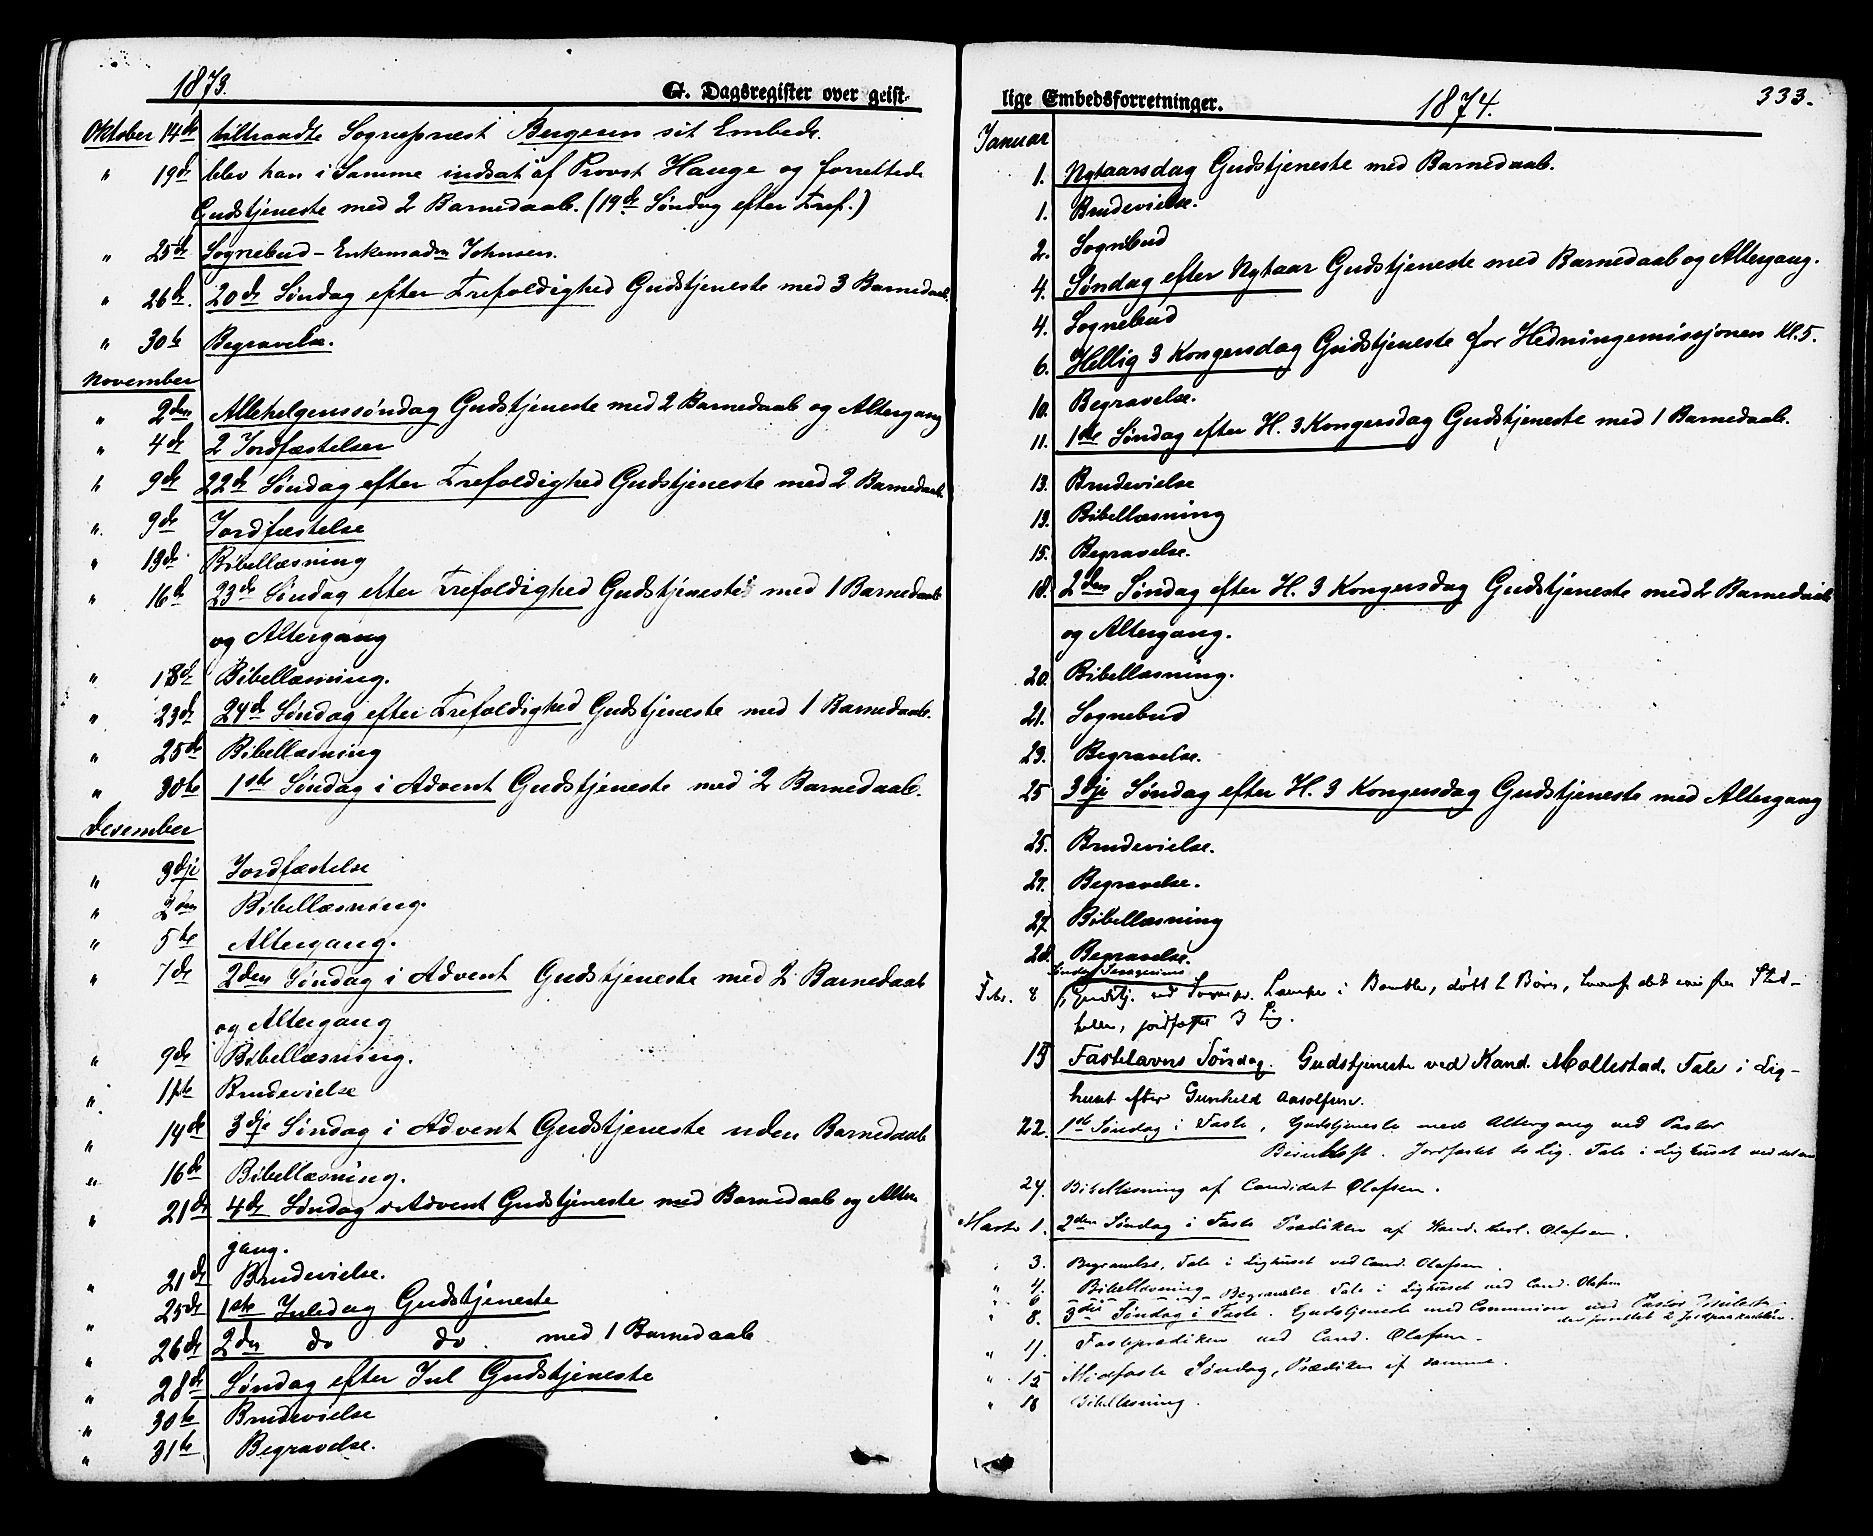 1873.
G. Dagsregister over geist-
Oktober 14de tiltraadte Sognepræst Bergersen sit Embede.
" 19de blev han i Samme indsat af Provst Hauge og forrettede
Gudstjeneste med 2 Barnedaab. (19de Søndag efter Tref.)
" 25de Sognebud - Enkemadm Johnsen.
" 26de. 20de Søndag efter Trefoldighed Gudstjeneste med 3 Barnedaab.
" 30te Begravelse.
November
" 2den Allehelgenssøndag Gudstjeneste med 2 Barnedaab og Altergang
" 4de 2 Jordfæstelser
" 9de 22de Søndag efter Trefoldighed Gudstjeneste med 2 Barnedaab
" 9de Jordfæstelse
" 13de Bibellæsning
" 16de 23de Søndag efter Trefoldighed Gudstjeneste med 1 Barnedaab
og Altergang
" 18de Bibellæsning.
" 23de 24de Søndag efter Trefoldighed Gudstjeneste med 1 Barnedaab.
" 25de Bibellæsning
" 30te 1ste Søndag i Advent Gudstjeneste med 2 Barnedaab.
Desember
" 3dje Jordfæstelse
" 2den Bibellæsning.
" 5te Altergang.
" 7de 2den Søndag i Advent Gudstjeneste med 2 Barnedaab
og Altergang
" 9de Bibellæsning.
" 11te Brudevielse
" 14de 3dje Søndag i Advent Gudstjeneste uden Barnedaab
" 16de Bibellæsning.
" 21de 4de Søndag i Advent Gudstjeneste med Barnedaab og Alter
gang.
" 21de Brudevielse.
" 25de 1ste Juledag Gudstjeneste
" 26de 2den do do. med 1 Barnedaab
" 28de Søndag efter Jul Gudstjeneste
" 30te Brudevielse
" 31te Begravelse.
lige Embedsforretninger.
1874.
333.
Januar
1. Nytaarsdag Gudstjeneste med Barnedaab.
1. Brudevielse.
2. Sognebud
4. Søndag efter Nytaar Gudstjeneste med Barnedaab og Altergang.
4. Sognebud
6. Hellig 3 Kongersdag Gudstjeneste for Hedningemissjonen Kl. 5.
10. Begravelse.
11. 1ste Søndag efter H. 3 Kongersdag Gudstjeneste med 1 Barnedaab.
13. Brudevielse
13. Bibellæsning
15. Begravelse.
18. 2den Søndag efter H. 3 Kongersdag Gudstjeneste med 2 Barnedaab
og Altergang.
20. Bibellæsning.
21. Sognebud
23. Begravelse.
25 3dje Søndag efter H. 3 Kongersdag Gudstjeneste med Altergang
25. Brudevielse.
27. Begravelse.
27. Bibellæsning
28. Begravelse.
Febr. 8 Gudstj. ved Sognepr. i Bamble, døbt 2 Børn, det ene fra Stat-
helle, jordfæstet 3 Lig.
15 Fastelavns Søndag. Gudstjeneste ved Kand. Mollestad. Tale i Lig-
huset efter Gunhild Aasolfsen.
22. 1ste Søndag i Faste, Gudstjeneste med Altergang ved Pastor
Jordfæstet to Lig. Tale i Lighuset ved
24. Bibellæsning af Candidat Olafsen.
Marts 1. 2den Søndag i Faste Prædiken af Kand. theol. Olafsen.
" 3. Begravelse, Tale i Lighuset ved Cand. Olafsen.
" 4. Bibellæsning
" 6 Begravelse Tale i Lighuset ved Cand. Olafsen
" 8. 3die Søndag i Faste. Gudstjeneste med Communion ved Pastor
der forrettet 2
" 11. Fasteprædiken ved Cand. Olafsen.
" 15 Midfaste Søndag, Prædiken af samme.
" 18 Bibellæsning.